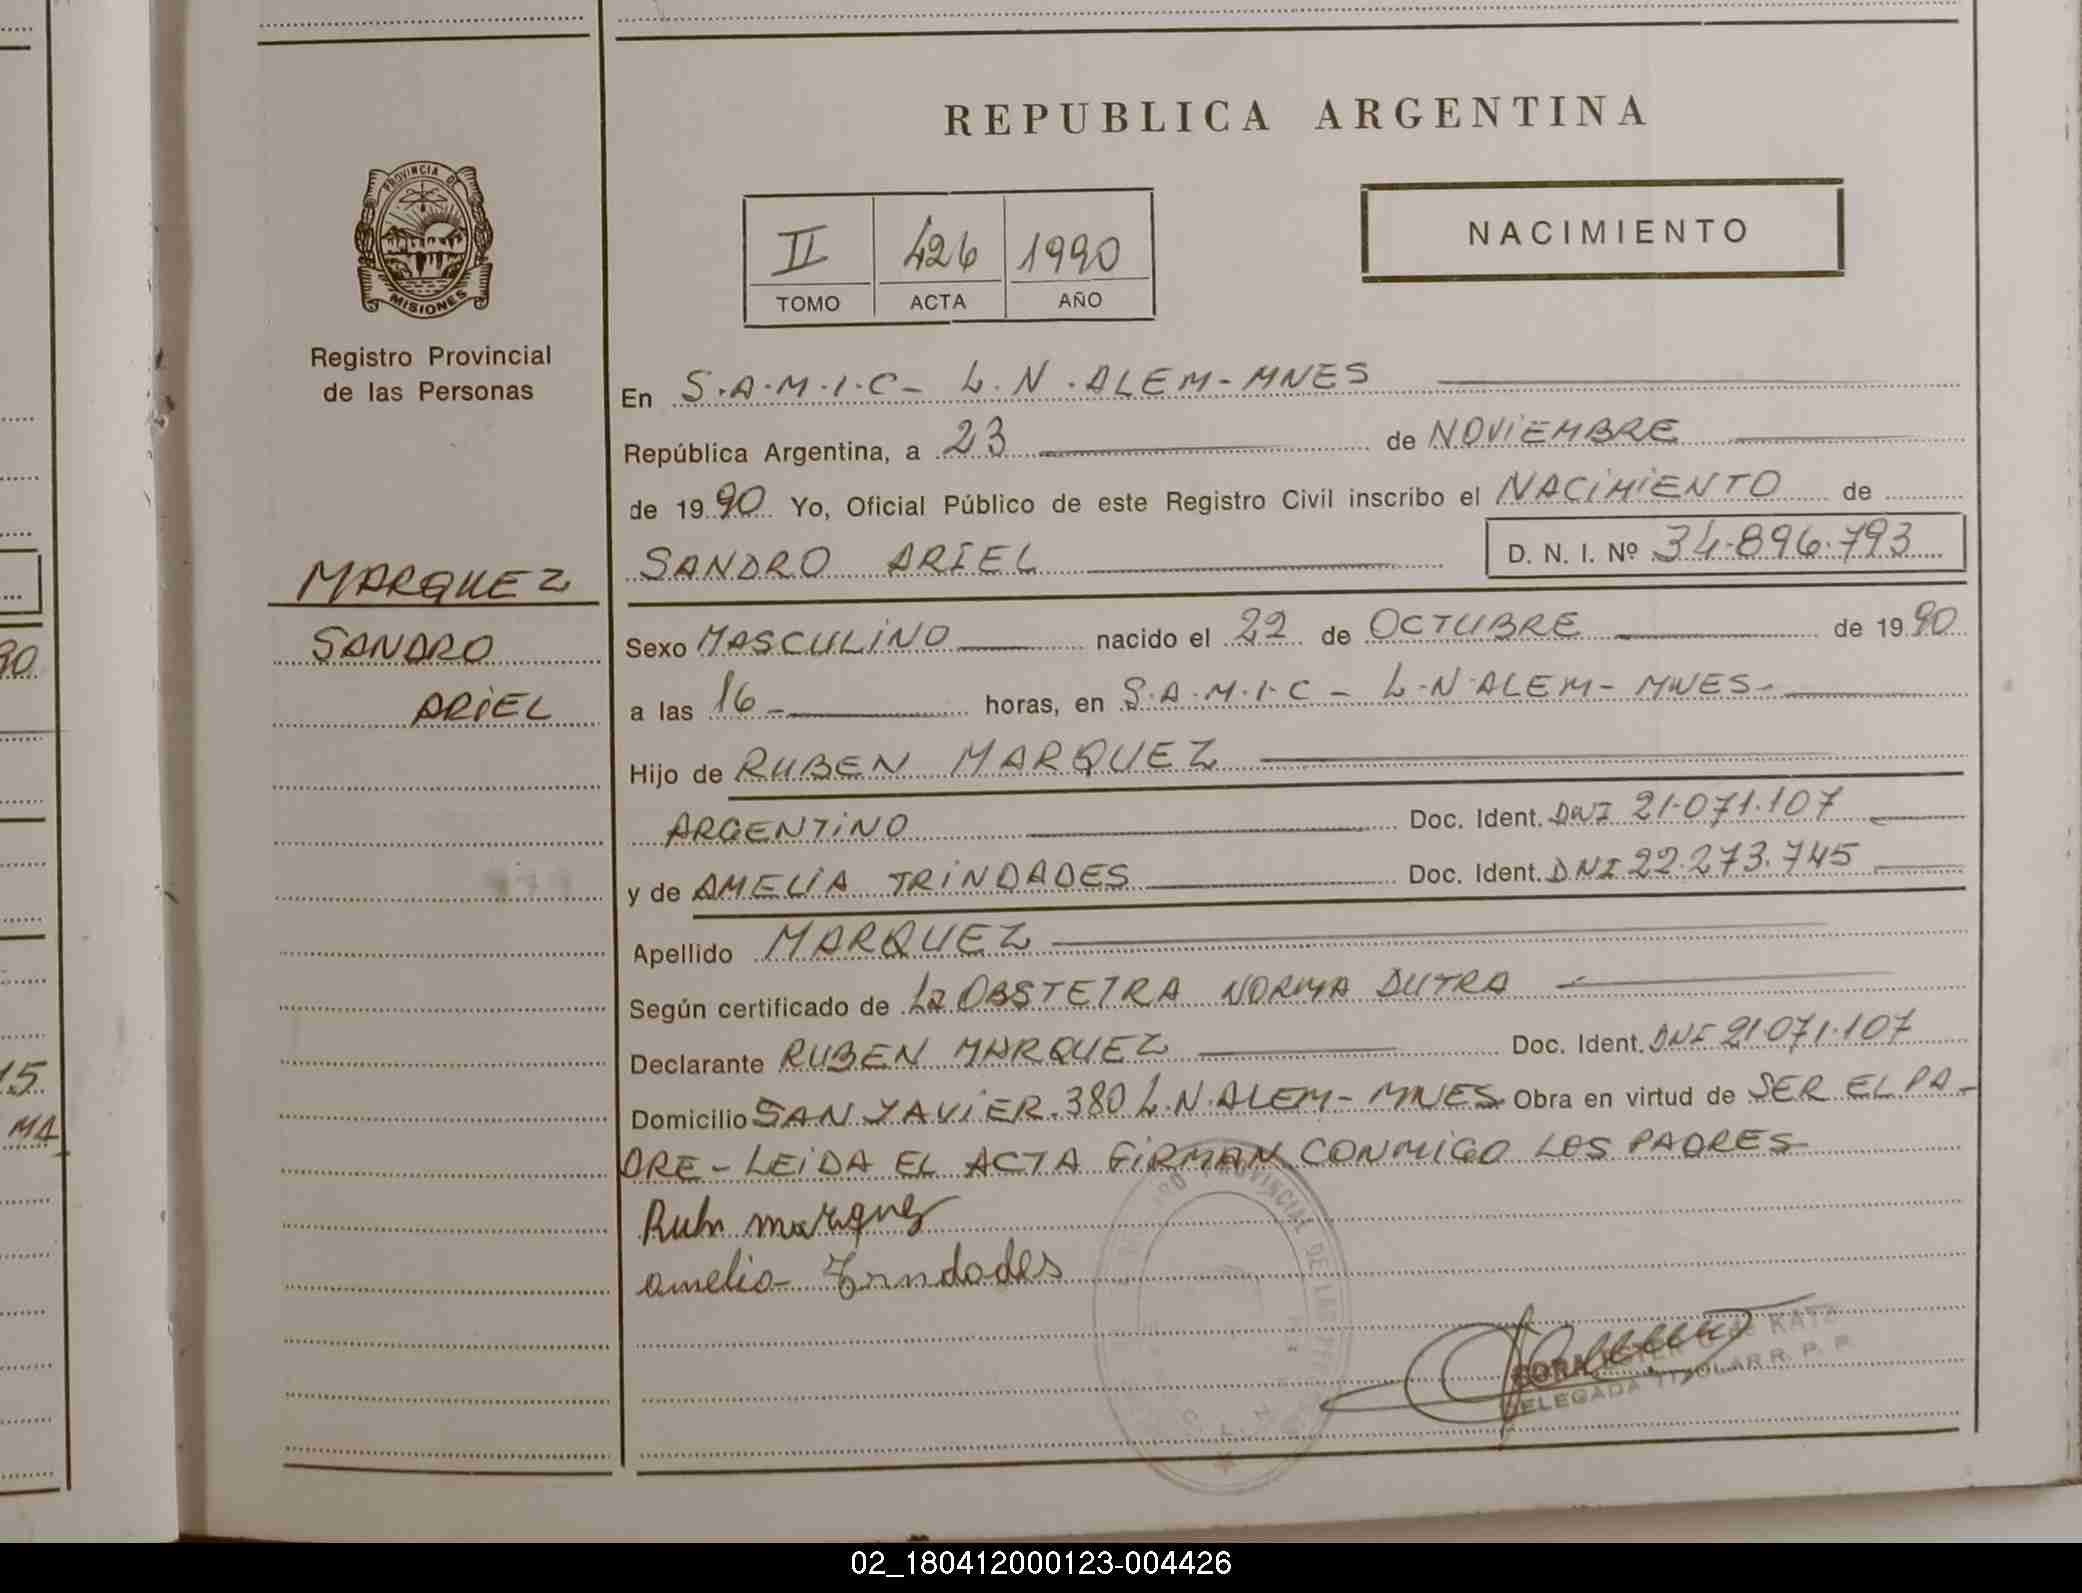 REPUBLICA ARGENTINA
PROVINCIA DE
MISIONES
Registro Provincial
de las Personas
II 426 1990
TOMO ACTA AÑO
NACIMIENTO
En S.A.M.I.C- L.N.ALEM-MNES
República Argentina, a 23 de NOViEMBRE
de 1990 Yo, Oficial Público de este Registro Civil inscribo el NACiMiENTO de
SANDRO ARIEL D. N. I. Nº 34.896.793
MARQUEZ
SANDRO
ARiEL
Sexo MASCULiNO nacido el 22 de OCTUBRE de 1990
a las 16 horas, en S.A.M.I.C - L.N.ALEM- MNES-
Hijo de RUBEN MARQUEZ
ARGENTiNO Doc. Ident. DNI 21.071.107
y de AMELiA TRiNDADES Doc. Ident. DNI 22.273.745
Apellido MARQUEZ
Según certificado de La OBSTETRA NORMA DUTRA
Declarante RUBEN MARQUEZ Doc. Ident. DNI 21.071.107
Domicilio SAN JAViER.380 L.N.ALEM- MNES Obra en virtud de SER EL PA-
DRE-LEiDA EL ACTA FiRMAN CONMiGO LOS PADRES-
Rubn marquez
amelia Trindades
PROVINCIAL DE LAS
KATZ
DELEGADA TITULAR R. P. P.
90
15
MA
02_180412000123-004426